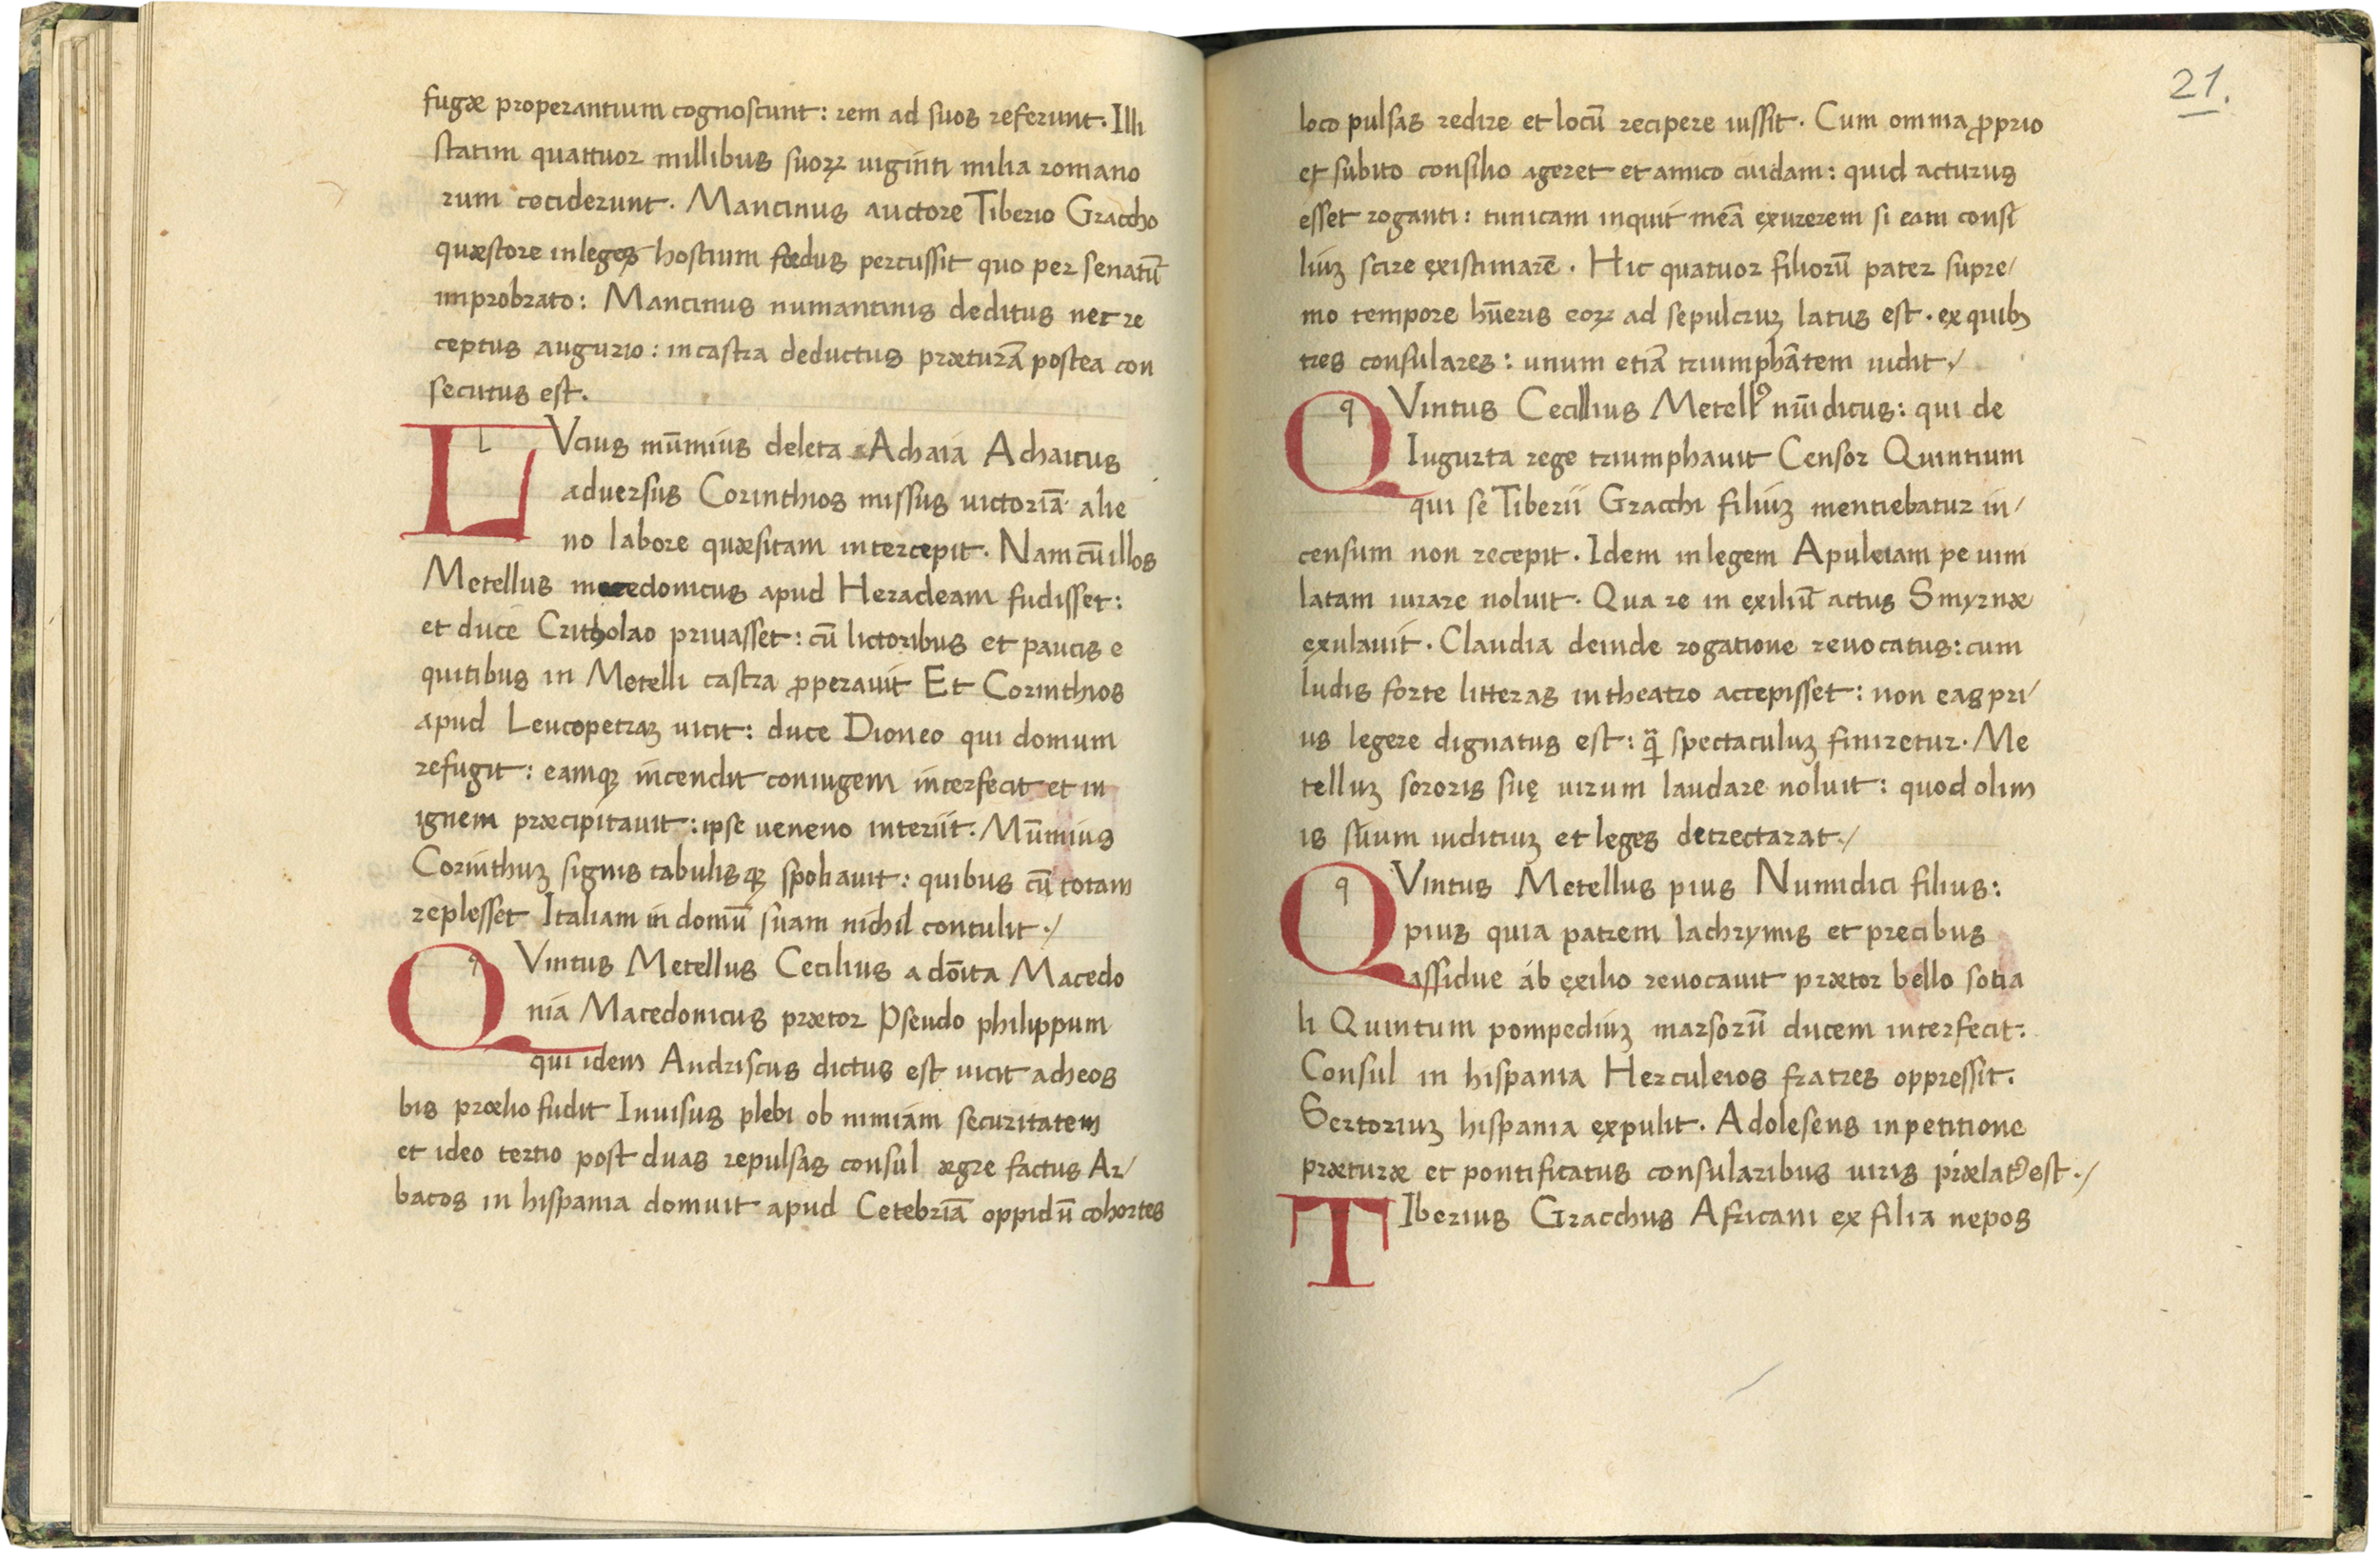 fugæ properantium cognoscunt: rem ad suos referunt. Illi
statim quattuor millibus suoꝝ uiginti milia romano
rum ceciderunt. Mancinus auctore Tiberio Graccho
quæstore in leges hostium fœdus percussit quo per senatū
improbrato: Mancinus numantinis deditus nec re
ceptus augurio: in castra deductus præturā postea con
secutus est.
L Vcius mūmius deleta Achaia Achaicus
aduersus Corinthios missus uictoriā alie
no labore quæsitam intercepit. Nam cū illos
Metellus macedonicus apud Heracleam fudisset:
et duce Critholao priuasset: cū lictoribus et paucis e
quitibus in Metelli castra ꝓperauit Et Corinthios
apud Leucopetraꝫ uicit: duce Dioneo qui domum
refugit: eamqꝫ incendit coniugem interfecit et in
ignem præcipitauit: ipse ueneno interiit. Mūmius
Corinthuꝫ signis tabulisqꝫ spoliauit: quibus cū totam
replesset Italiam in domū suam nichil contulit./
Q Vintus Metellus Cecilius a dōita Macedo
nia Macedonicus prætor Pseudo philippum
qui idem Andriscus dictus est uicit acheos
bis prœlio fudit Inuisus plebi ob nimiam securitatem
et ideo tertio post duas repulsas consul ægre factus Ar/
bacos in hispania domuit apud Cetebriā oppidū cohortes
21.
loco pulsas redire et locū recipere iussit. Cum omnia ꝓprio
et subito consilio ageret et amico cuidam: quid acturus
esset roganti: tunicam inquit meā exurerem si eam consi
liuꝫ scire existimarē. Hic quatuor filiorū pater supre/
mo tempore hūeris eoꝝ ad sepulcruꝫ latus est. ex quibꝫ
tres consulares: unum etiā triumphātem uidit./
Q Vintus Cecilius Metellꝰ nūidicus: qui de
Iugurta rege triumphauit Censor Quintium
qui se Tiberii Gracchi filiuꝫ mentiebatur in/
censum non recepit. Idem in legem Apuleiam pe uim
latam iurare noluit. Qua re in exiliū actus Smyrnæ
exulauit. Claudia deinde rogatione reuocatus: cum
ludis forte litteras in theatro accepisset: non eas pri/
us legere dignatus est: ꝙ̄ spectaculuꝫ finiretur. Me
telluꝫ sororis suę uirum laudare noluit: quod olim
is suum iuditiuꝫ et leges detrectarat./
Q Vintus Metellus pius Numidici filius:
pius quia patrem lachrymis et precibus
assidue ab exilio reuocauit prætor bello sotia
li Quintum pompediuꝫ marsorū ducem interfecit:
Consul in hispania Herculeios fratres oppressit.
Sertoriuꝫ hispania expulit. Adolesens in petitione
præturæ et pontificatus consularibus uiris prælatꝰ est./
T Iberius Gracchus Africani ex filia nepos